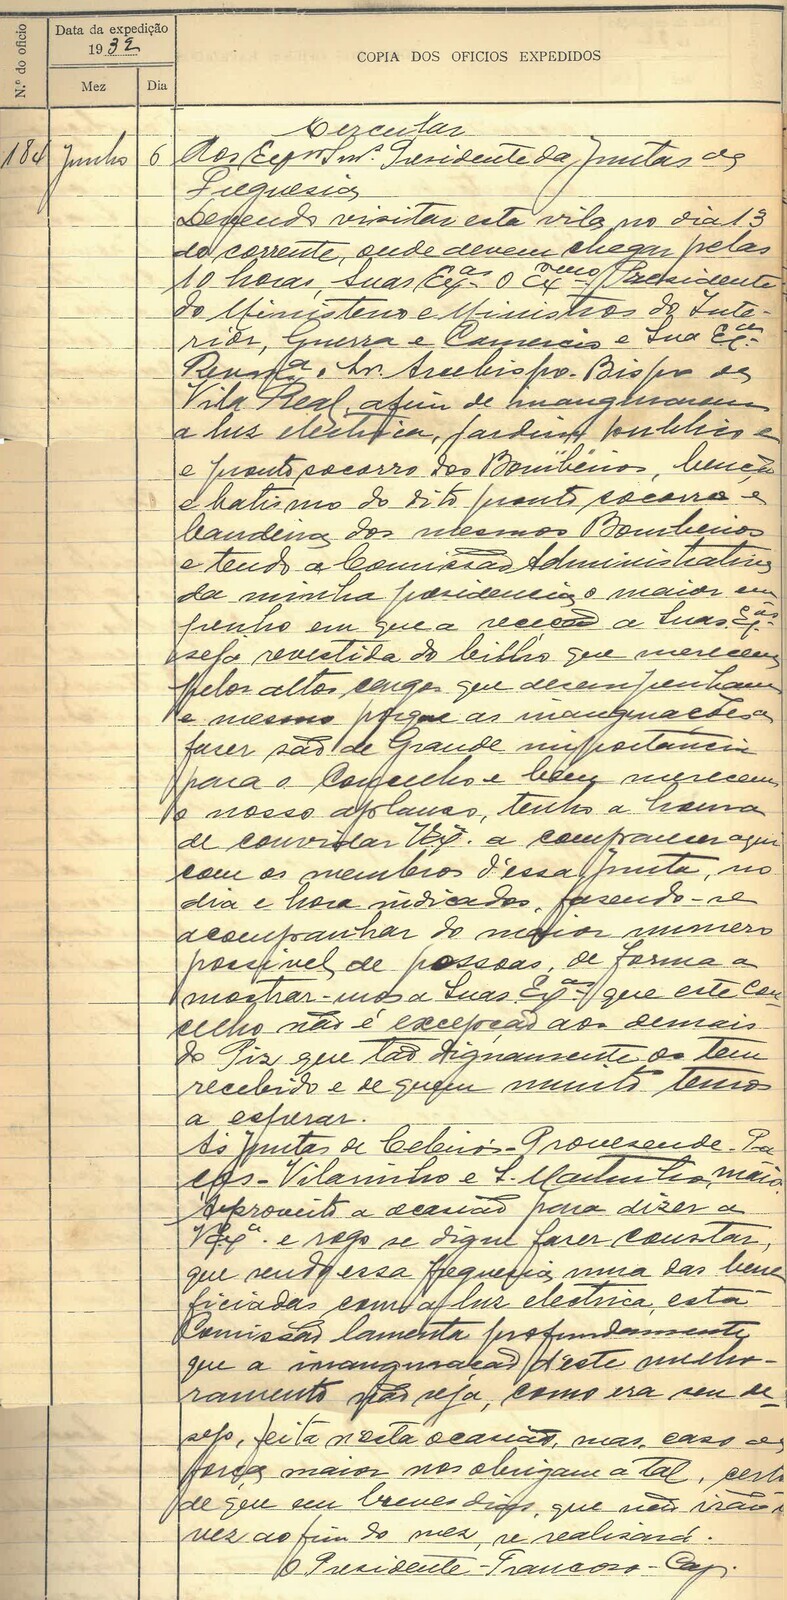 Nº do oficio
Data da expedição
1932
Mez
Dia
COPIA DOS OFICIOS EXPEDIDOS
Circular
184 Junho 6 Aos Exmos Snrs. Presidente da Juntas de
Freguesia
Devendo visitar esta vila no dia 13
do corrente, onde devem chegar pelas
10 horas, Suas Exas o Exmo Presidente
do Ministerio e Ministros do Inte-
rior, Guerra e Comercio e Sua Exa
Revma o Sr. Arcebispo-Bispo de
Vila Real, afim de inaugurarem
a luz electrica, jardim publico e
e pronto socorro dos Bombeiros, benção
e batismo do dito pronto socorro e
bandeira dos mesmos Bombeiros
e tendo a Comissão Administrativa
da minha presidencia o maior em
penho em que a receção a Suas Exas
seja revestida do brilho que merecem
pelos altos cargos que desempenham
e mesmo porque as inaugurações a
fazer são de Grande importância
para o Concelho e bem merecem
o nosso aplauso, tenho a honra
de convidar V. Exa. a comparecer aqui
com os membros d'essa Junta, no
dia e hora indicados, fasendo-se
acompanhar do maior numero
possivel de pessoas, de forma a
mostrar-mos a Suas Exas que este Con-
celho não é excepção aos demais
do Piz que tão dignamente os tem
recebido e de quem muito temos
a esperar.
Ás Juntas de Celeirós-Provesende-Pa
ços-Vilarinho e S. Martinho, mais.
Aproveito a ocasião para dizer a
V. Exa. e rogo se digne fazer constar,
que sendo essa freguesia uma das bene
ficiadas com a luz electrica, esta
Comissão lamenta profundamente
que a inauguração d'este melho-
ramento não seja, como era seu de-
sejo, feita nesta ocasião, mas, caso de
força maior nos obrigam a tal, certo
de que em breves dias, que não irão
vez ao fim do mez, se realisará.
O Presidente-Francoso-Cap.